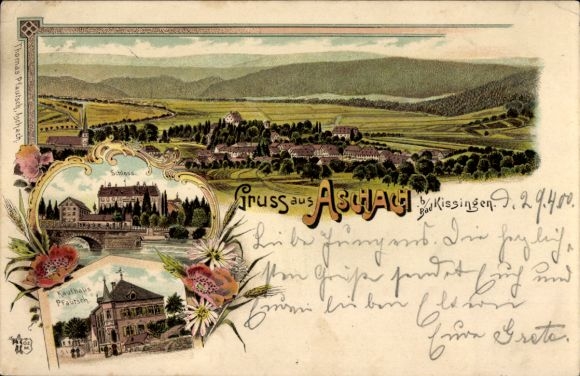 Thomas Pfautsch, Aschach.
Schloss.
Gruss aus ASCHACH b/ Bad Kissingen. d. 29.4.00.
Kaufhaus
Pfautsch
Liebe Jungens. Die herzlich-
sten Grüße sendet Euch und
Euren lieben Eltern
Eure Grete.